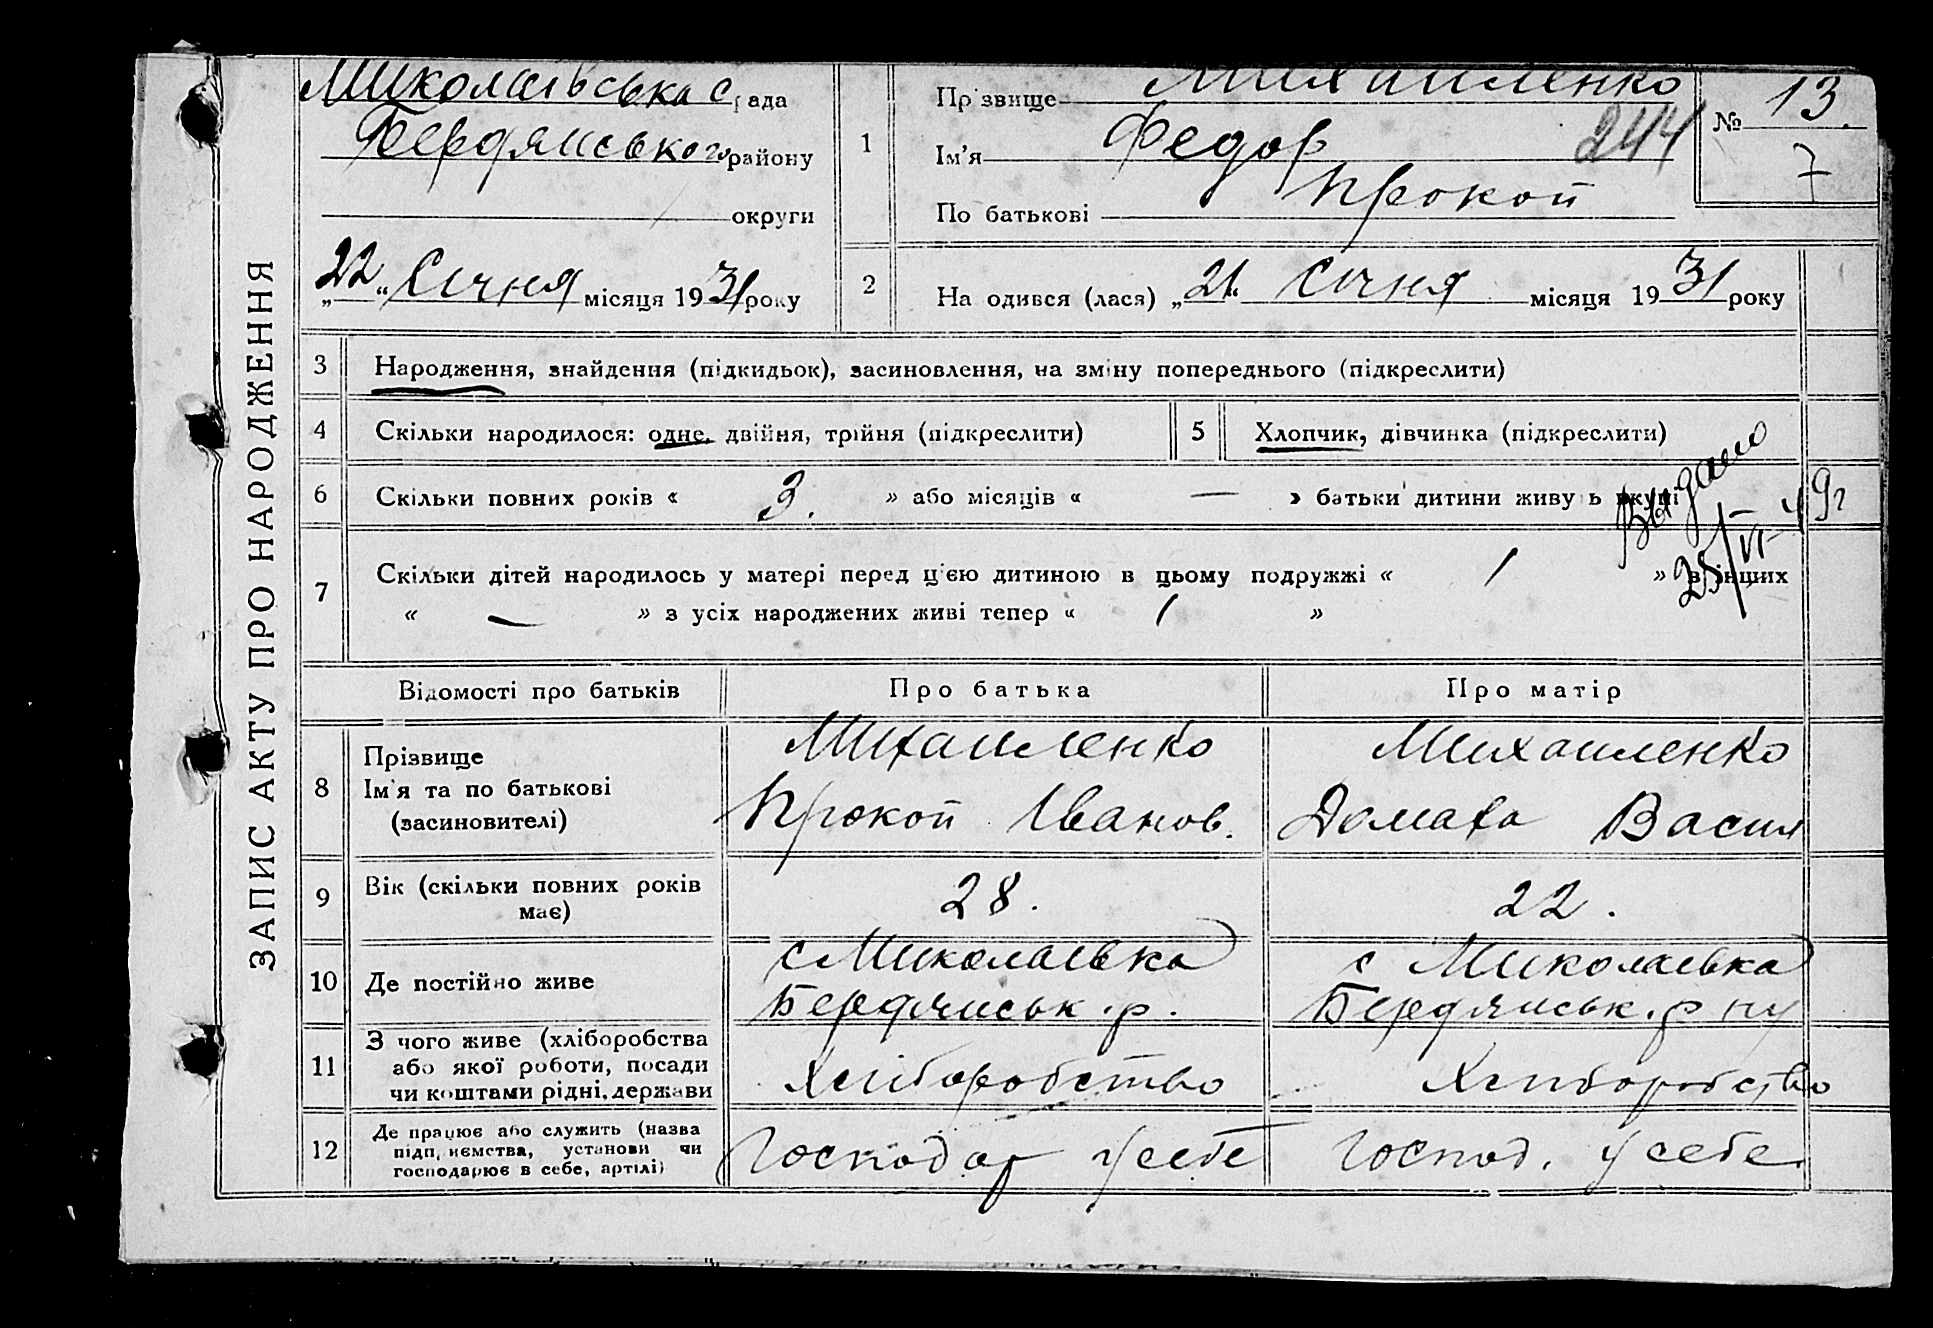 ЗАПИС АКТУ ПРО НАРОДЖЕННЯ
Миколаївська с рада
Бердянського району
округи
„22“ Січня місяця 1931 року
1
Прізвище Михайленко
Ім'я Федор 244
По батькові Прокоп
№ 13.
7
2 Народився (лася) „21“ Січня місяця 1931 року
3 Народження, знайдення (підкидьок), засиновлення, на зміну попереднього (підкреслити)
4 Скільки народилося: одне, двійня, трійня (підкреслити)
5 Хлопчик, дівчинка (підкреслити)
6 Скільки повних років « 3. » або місяців « — » батьки дитини живуть вкупі
Выдано
25/VI-49г
7 Скільки дітей народилось у матері перед ц'єю дитиною в цьому подружжі « 1 » в інших
« — » з усіх народжених живі тепер « 1 »
Відомості про батьків Про батька Про матір
8 Прізвище
Ім'я та по батькові
(засиновителі)
Михайленко
Прокоп Іванов.
Михайленко
Домаха Васил
9 Вік (скільки повних років
має)
28.
22.
10 Де постійно живе
с Миколаївка
Бердянськ. р.
с Миколаївка
Бердянськ. р ну
11 З чого живе (хліборобства
або якої роботи, посади
чи коштами рідні, держави
Хліборобство
Хліборобство
12 Де працює або служить (назва
підприємства, установи чи
господарює в себе, артілі)
Господар у себе
Господ. у себе